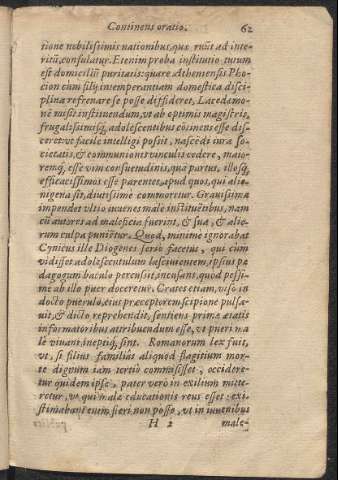 Continens oratio. 62
tione nobilissimis nationibus, quæ ruũt ad inte-
ritũ, consulatur. Etenim proba institutio tutum
est domiciliũ puritatis: quare Atheniensis Pho-
cion cum filij intemperantiam domestica disci-
plina refrenare se posse diffideret, Lacedæmo-
nẽ misit instituendum, vt ab optimis magistris,
frugalissimisq́; adolescentibus eò, mens esse dis-
ceret: vt facile intelligi possit, nascẽdi iura so-
cietatis, & communionis vinculis cedere, maio-
remq́; esse vim consuetudinis, quã partus, illosq́;
efficacissimos esse parentes, apud quos, qui alie-
nigena sit, diutissimè commoretur. Grauissima
impendet vltio iuuenes malè instituẽtibus, nam
cũ autores ad maleficia fuerint, & sua, & alio-
rum culpa puniẽtur. Quod, minimè ignorabat
Cynicus ille Diogenes serio facetus, qui cùm
vidisset adolescentulum lasciuientem, ipsius pæ-
dagogum baculo percussit, incusans, quod pessi-
mè ab illo puer doceretur. Crates etiam, viso in
docto puerulo, eius præceptorem scipione pulsa-
uit, & dicto reprehendit, sentiens primæ ætatis
informatoribus attribuendum esse, vt pueri ma-
lè viuant, ineptiq́; sint. Romanorum lex fuit,
vt, si filius familiâs aliquod flagitium mor-
te dignum iam tertiò commisisset, occidere-
tur quidem ipse, pater verò in exilium mitte-
retur, vt qui malæ educationis reus esset: exi-
stimabant enim fieri non posse, vt in iuuenibus
H 2 male-